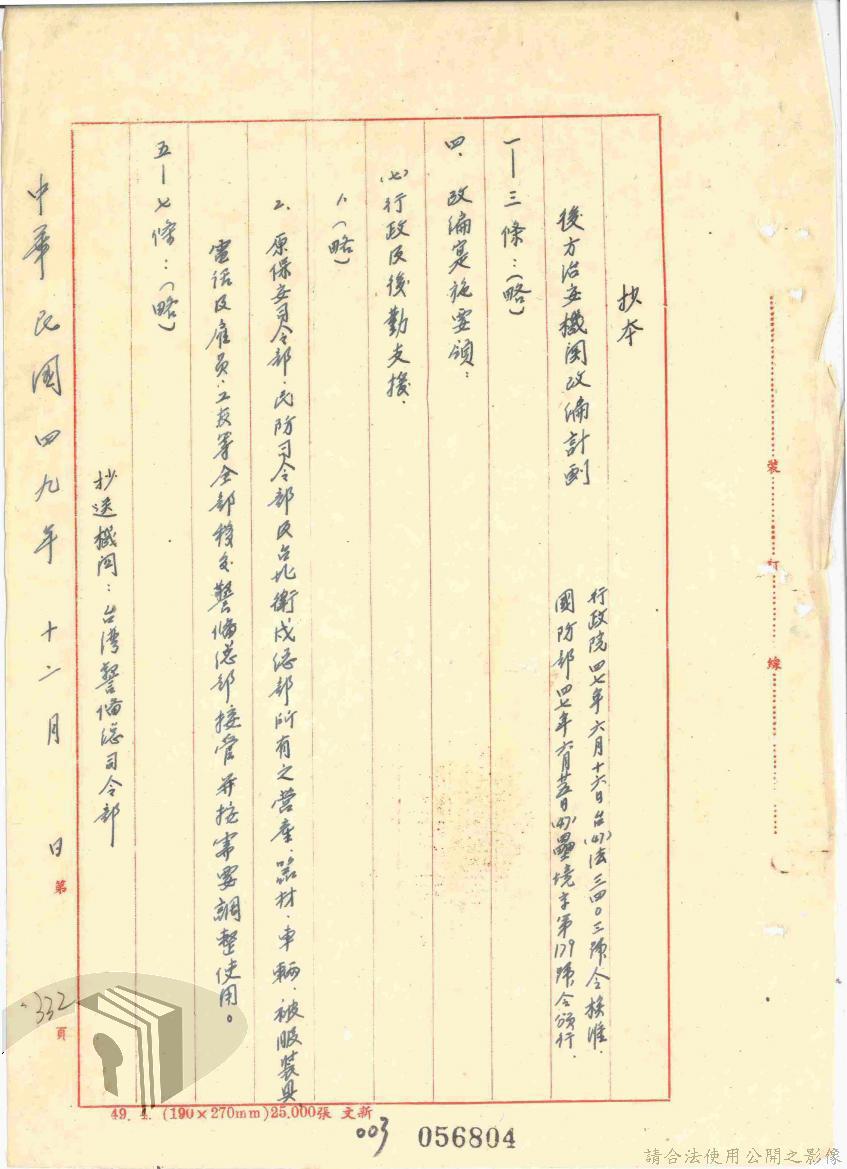 抄本
後方治安機関改編計劃
行政院四七年六月十六日台(47)法三四〇三號令核准.
國防部四七年六月廿五日(47)壘境字第179號令頒行.
一－三條：(略)
四、改編實施要領：
(七)行政及後勤支援.
1.(略)
2.原保安司令部.民防司令部及台北衛戍總部所有之營產.器材.車輛.被服裝具
電話及雇員.工友等全部移交警備總部接管并按需要調整使用。
五－七條：(略)
抄送機関：台灣警備總司令部
中華民國四九年十二月 日
第332頁
裝
訂
線
49. 4. (190×270mm)25.000張 文新
003
056804
請合法使用公開之影像